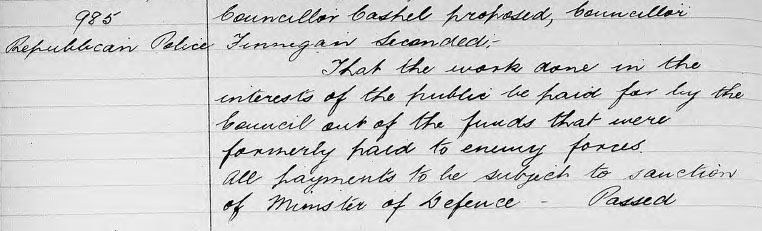 985
Republican Police
Councillor Cashel proposed, Councillor
Finnegan seconded;-
That the work done in the
interests of the public be paid for by the
Council out of the funds that were
formerly paid to enemy forces.
All payments to be subject to sanction
of Minister of Defence - Passed